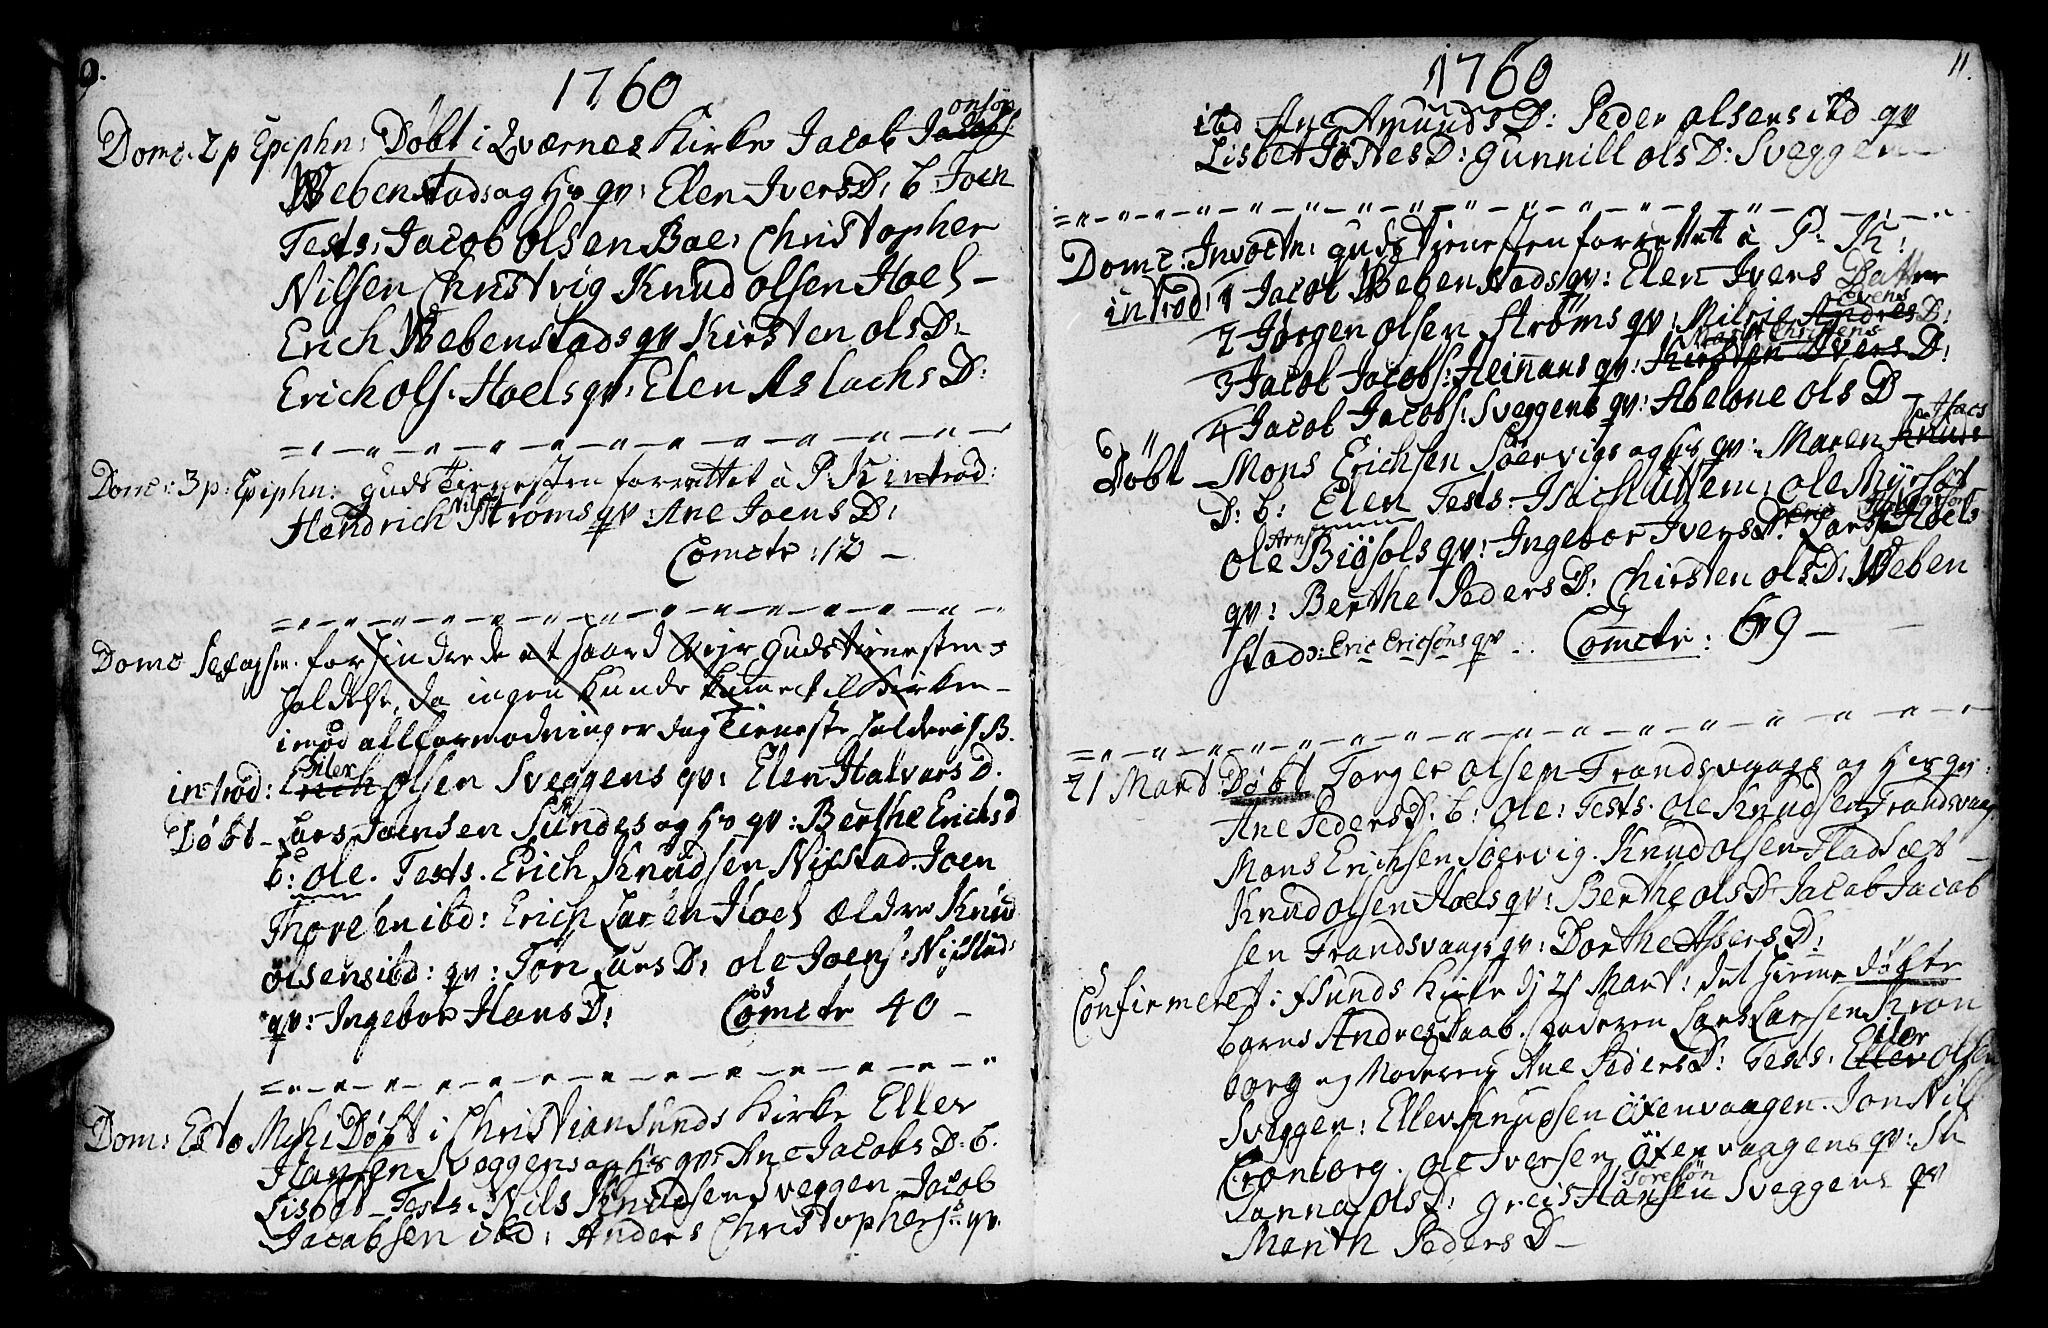 9.
1760
Domc. 2 p Epiphn: Döbt i Qværnes Kirke Jacob Jacobs onsøn
Webenstads og Hs qv: Elen Ivers D: b: Joen
Tests: Jacob Olsen Boe: Christopher
Nilsen Christvig Knud Olsen Hoel -
Erich Webenstads qv Kirsten Ols D:
Erich Ols. Hoels qv: Elen Aslachs D:
Domc: 3 p: Epiphn: Guds Tienesten forrettet i P: K introd:
Hendrich Nils Strøms qv: Ane Joens D:
Comctr: 12 -
Domc Sexagsm. forhindrede et haard Veir Guds tienesten
holdelse, da ingen kunde komme til Kirken -
imod all formodning er dog Tieneste holden is B.
introd: Erich Eiler Olsen Sveggens qv: Elen Halvars D.
Döbt - Lars Joensen Sundes og Hs qv: Berthe Erichs D
b: Ole. Tests. Erich Knudsen Nixstad. Joen
Thore en ibd: Erich Larsen Hoel ældre Knud
Olsens ibd: qv: Ton Lars D: Ole Joens: Nixstad:
qv: Ingebor Hans D: Comctr 40 -
Dom: Esto Mihi Döbt i Christiansunds Kirke Eller
Hansen Sveggens og Hs qv: Ane Jacobs D: b.
Lisbet - Tests: Nils Knudsen Sveggen Jacob
Jacobsen ibd: Anders Christophers: qv:
11.
1760
ibd Ane Amunds D: Peder Olsens ibd qv
Lisbet Jöttes D: Gunnill Ols D: Sveggen
Domc: Invoctn: Guds tienesten forrettet i P: K:
introd: 1 Jacob Webenstads qv: Elen Ivers Datter
2 Jörgen Olsen Strøms qv: Milrie Andres Evens D:
3 Jacob Jacobs: Heinnæs qv: Kirsten Ivers Christens D:
4 Jacob Jacobs: Sveggens qv: Abelone Ols D -
Döbt - Mons Erichsen Soervigs og Hs qv: Maren Knuds Isacs
D: b: Elen Tests. Isach Ussem: Ole Myrset
Ole Arns Biösols qv: Ingebor Ivers D: Lars Eric Hoels
qv: Berthe Peders D: Chirsten Ols D: Weben
stad: Eric Ericsöns qv .. Comctr: 69 -
21 Mart Döbt Torger Olsen Trandsvaags og Hs qv:
Ane Peders D: b: Ole: Tests. Ole Knudsen Trandsvaag
Mons Erichsen Soervig. Knud Olsen Fladset -
Knud Olsen Hoels qv: Berthe Ols D: Jacob Jacob
sen Trandsvaags qv: Dorthe Assers D:
Confirmeret i fsunds Kirke dj 21 Mart: det hieme döfte
barns Andres Daab. Faderen Lars Larsen Kron
borg og Moderen Ane Peders D: Tests: Eller Eiler Olsen
Sveggen: Eller Knudsen Öxenvaagen. Jon Nils
Cronborg. Ole Iversen Öxenvaagens qv: Su
sanna Ols D: Greis Hansen Toresön Sveggens qv
Marith Peders D -